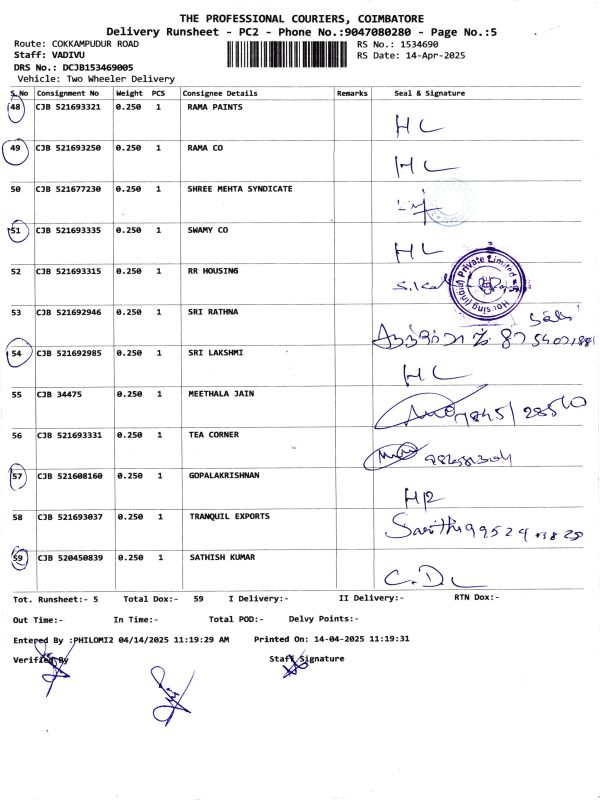 THE PROFESSIONAL COURIERS, COIMBATORE
Delivery Runsheet - PC2 - Phone No.:9047080280 - Page No.:5
Route: COKKAMPUDUR ROAD RS No.: 1534690
Staff: VADIVU RS Date: 14-Apr-2025
DRS No.: DCJB153469005
Vehicle: Two Wheeler Delivery
S.No Consignment No Weight PCS Consignee Details Remarks Seal & Signature
48 CJB 521693321 0.250 1 RAMA PAINTS
HL
49 CJB 521693250 0.250 1 RAMA CO
HL
50 CJB 521677230 0.250 1 SHREE MEHTA SYNDICATE
51 CJB 521693335 0.250 1 SWAMY CO
HL
52 CJB 521693315 0.250 1 RR HOUSING
Housing (India) Private Limited
53 CJB 521692946 0.250 1 SRI RATHNA
54 CJB 521692985 0.250 1 SRI LAKSHMI
HL
55 CJB 34475 0.250 1 MEETHALA JAIN
7845/28510
56 CJB 521693331 0.250 1 TEA CORNER
57 CJB 521608160 0.250 1 GOPALAKRISHNAN
58 CJB 521693037 0.250 1 TRANQUIL EXPORTS
59 CJB 520450839 0.250 1 SATHISH KUMAR
Tot. Runsheet:- 5 Total Dox:- 59 I Delivery:- II Delivery:- RTN Dox:-
Out Time:- In Time:- Total POD:- Delvy Points:-
Entered By :PHILOMI2 04/14/2025 11:19:29 AM Printed On: 14-04-2025 11:19:31
Verified By Staff Signature